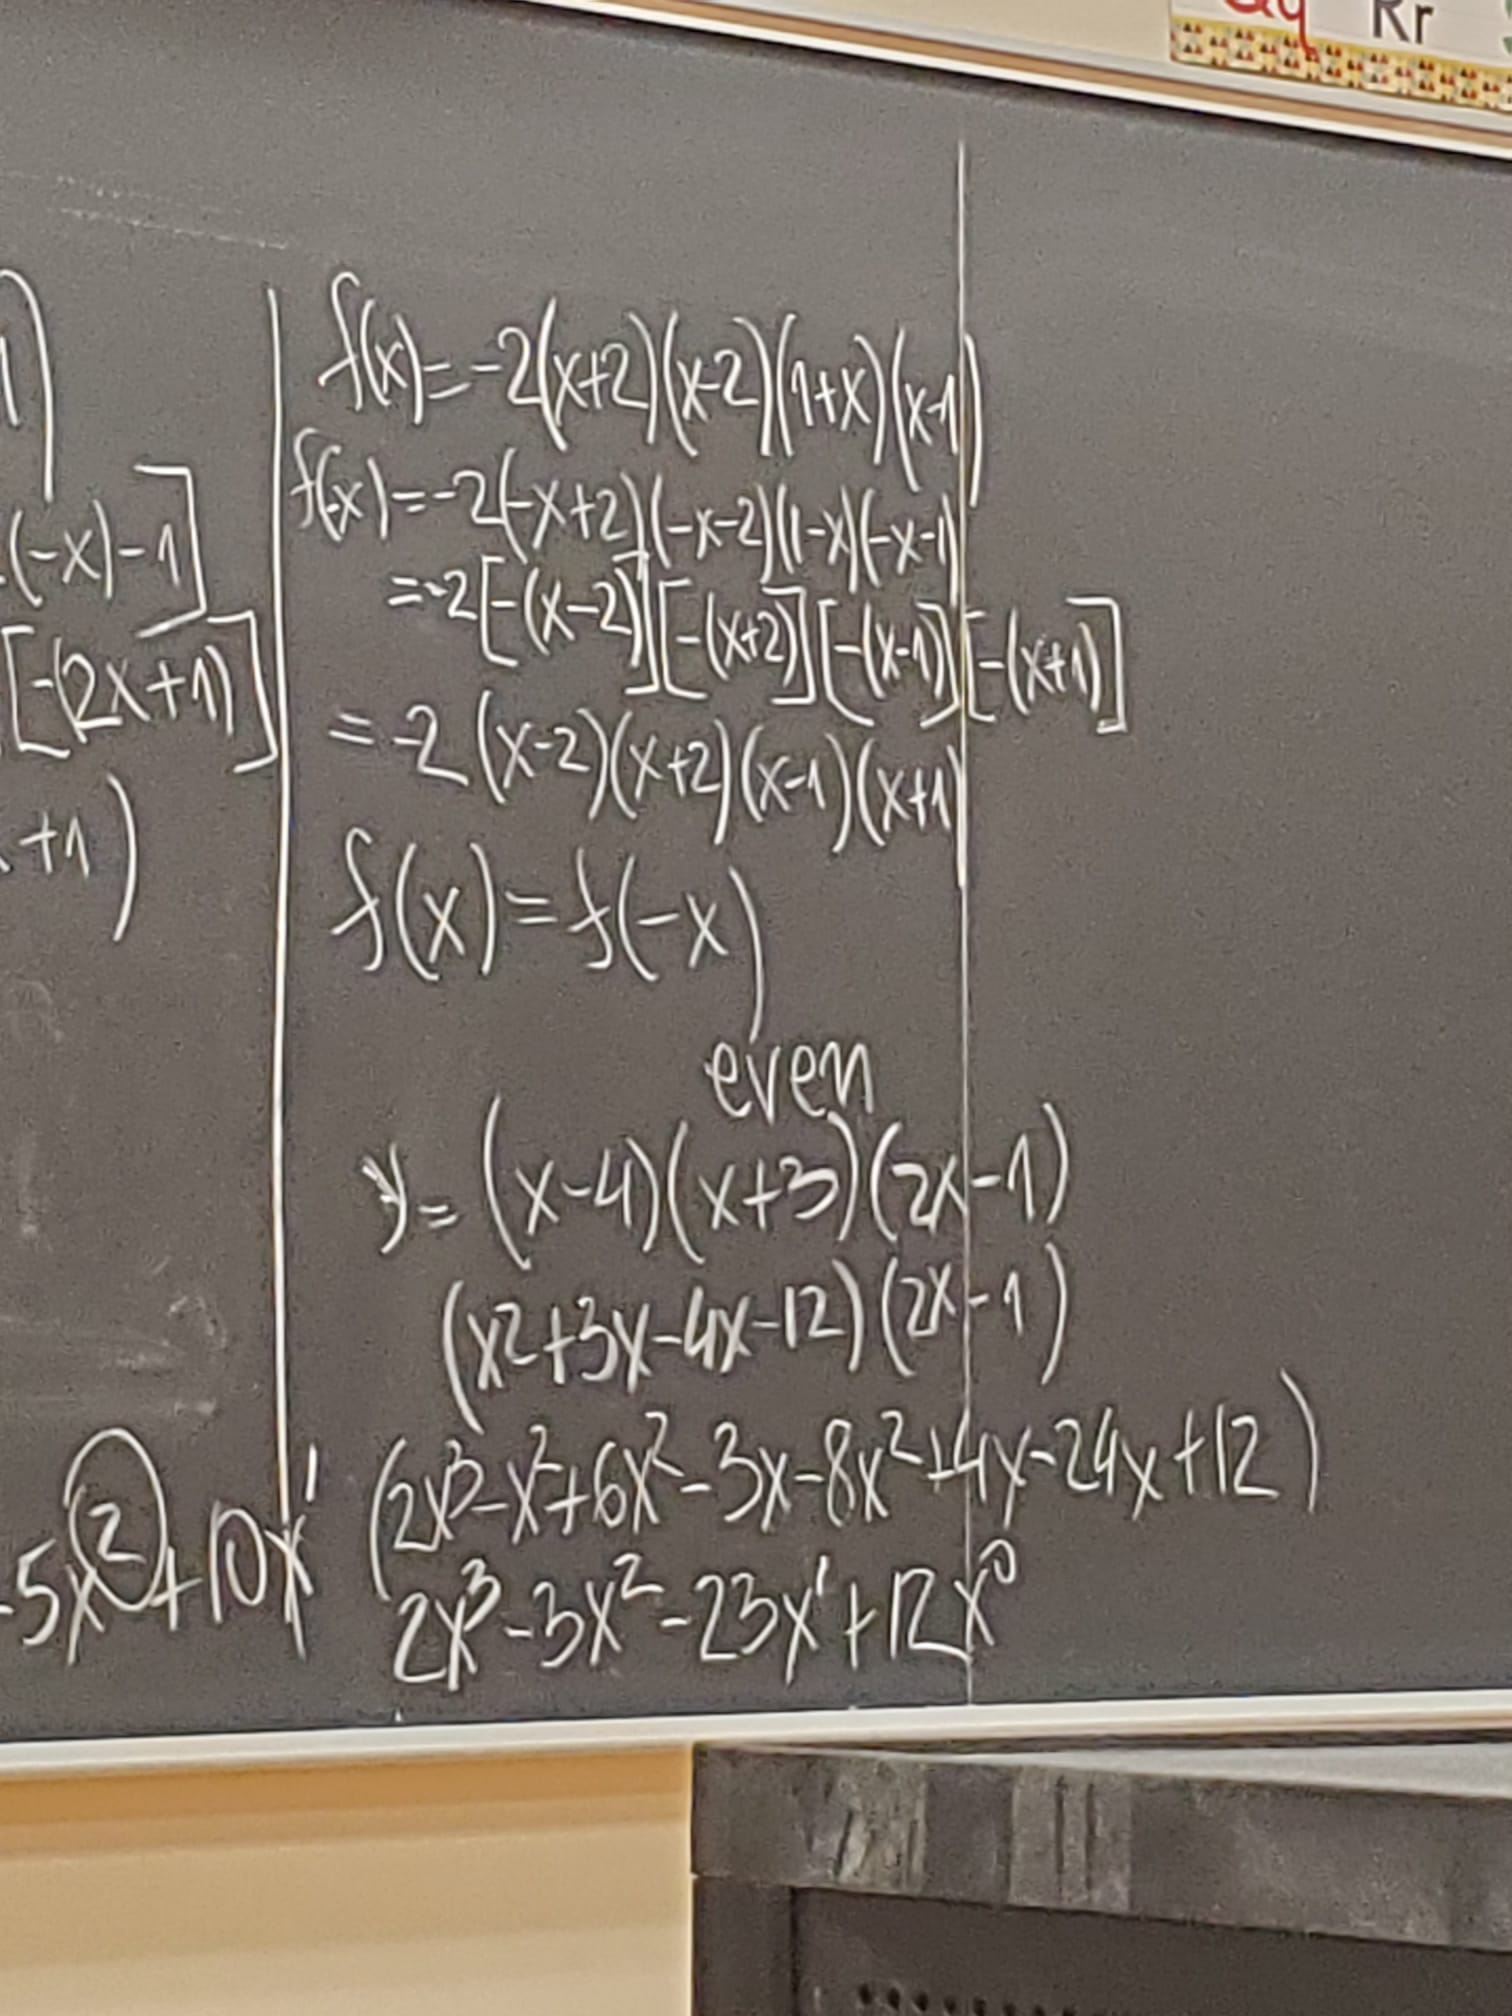 Qq Rr
1)
(-x)-1]
[-(2x+1)]
+1)
-5x²+10x¹
f(x)=-2(x+2)(x-2)(1+x)(x-1)
f(-x)=-2(-x+2)(-x-2)(1-x)(-x-1)
=-2[-(x-2)][-(x+2)][-(x-1)][-(x+1)]
=-2(x-2)(x+2)(x-1)(x+1)
f(x)=f(-x)
even
y=(x-4)(x+3)(2x-1)
(x²+3x-4x-12)(2x-1)
(2x³-x²+6x²-3x-8x²+4x-24x+12)
2x³-3x²-23x¹+12x⁰